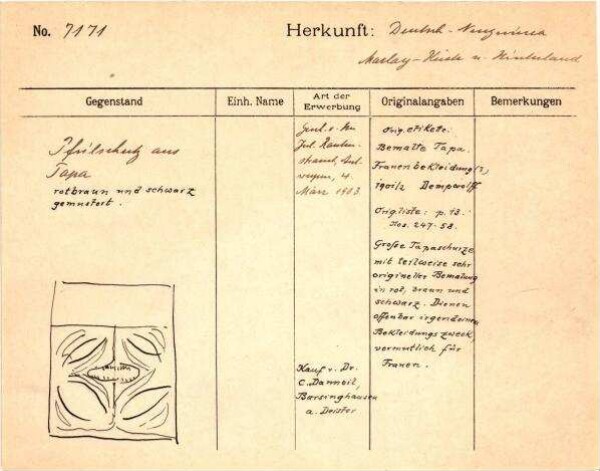 No. 7171
Herkunft: Deutsch-Neuguinea
Maclay-Küste u. Hinterland
Gegenstand
Einh. Name
Art der
Erwerbung
Originalangaben
Bemerkungen
aus
Tapa
rotbraun und schwarz
gemustert.
4.
März 1903
Kauf v. Dr.
C. Danneil,
Barsinghausen
a. Deister
Orig. etikete:
Bemalte Tapa.
Frauenbekleidung(?)
Dempwolff
Orig. liste: p. 13.
Nos. 247-58.
Große Tapaschurze
mit teilweise sehr
origineller Bemalung
in rot, braun und
schwarz. Dienen
offenbar irgendeinem
Bekleidungszweck,
vermutlich für
Frauen.